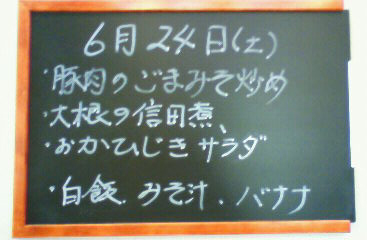 6月24日(土)
・豚肉のごまみそ炒め
・大根の信田煮、
・おかひじきサラダ
・白飯、みそ汁、バナナ